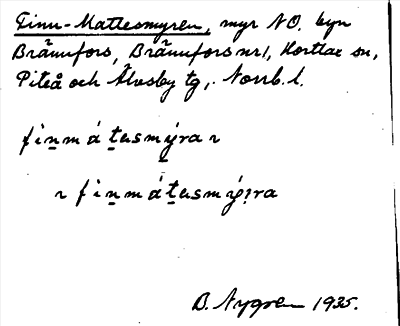 Finn-Mattesmyren, myr NO. byn
Brännfors, Brännfors nr 1, Hortlax sn,
Piteå och Älvsby tg, Norrb. l.
fin̠m á t̠asmýra ~
~ fin̠m á t̠asmýṛra
B. Nygren 1935.